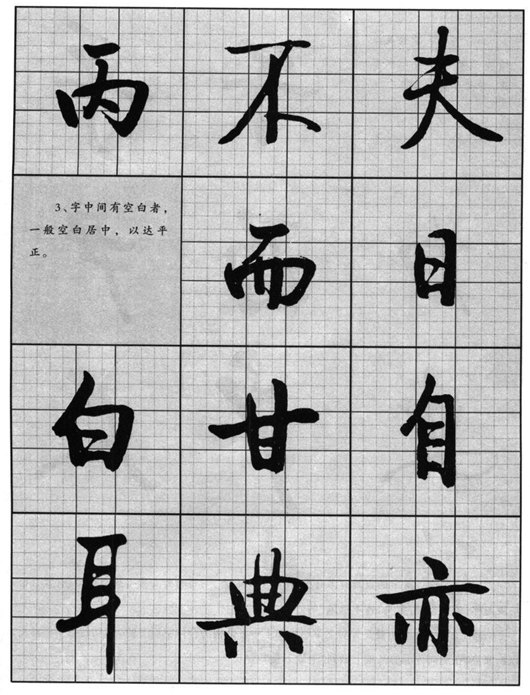 丙 不 夫
3、字中间有空白者，
一般空白居中，以达平
正。
而 日
白 甘 自
耳 典 亦